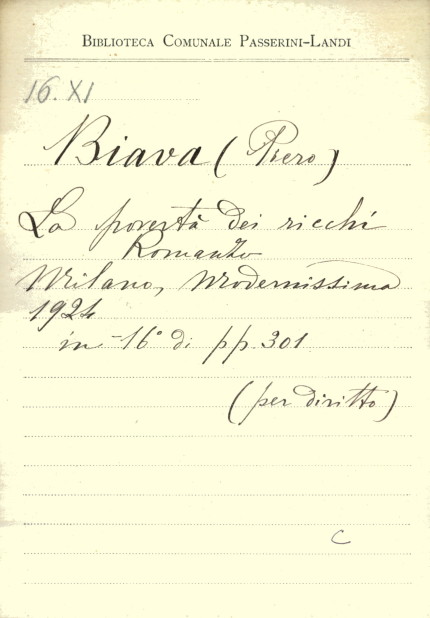 BIBLIOTECA COMUNALE PASSERINI-LANDI
16. XI
Biava (Piero)
La povertà dei ricchi
Romanzo
Milano, Modernissima
1924
in-16° di pp. 301
(per diritto)
C